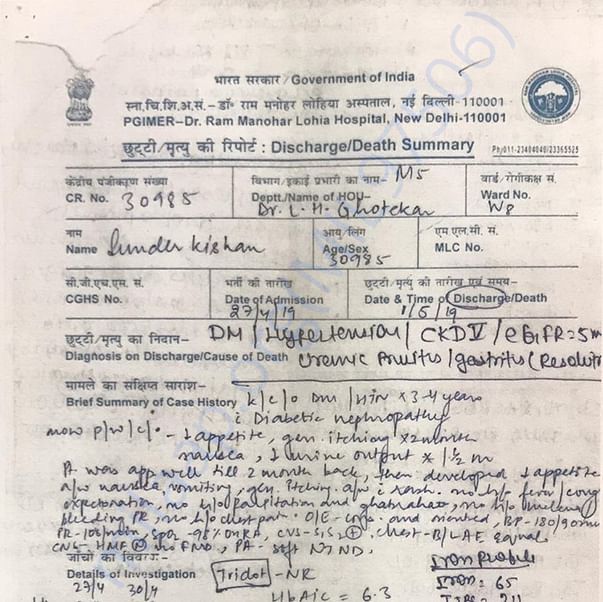 भारत सरकार/Government of India
स्ना.चि.शि.अ.सं.- डॉ० राम मनोहर लोहिया अस्पताल, नई दिल्ली-110001
PGIMER-Dr. Ram Manohar Lohia Hospital, New Delhi-110001
छुट्टी/मृत्यु की रिपोर्ट : Discharge/Death Summary
Ph/011-23404040/23365525
केंद्रीय पंजीकरण संख्या
CR. No. 30985
विभाग/इकाई प्रभारी का नाम- M5
Deptt./Name of HOU-
Dr. L. H. Ghotekar
वार्ड/रोगीकक्ष सं.
Ward No.
W8
नाम
Name Sunder Kishan
आयु/लिंग
Age/Sex
30985
एम.एल.सी. सं.
MLC No.
सी.जी.एच.एस. सं.
CGHS No.
भर्ती की तारीख
Date of Admission
27/4/19
छुट्टी/मृत्यु की तारीख एवं समय-
Date & Time of Discharge/Death
1/5/19
छुट्टी/मृत्यु का निदान- DM / Hypertension / CKD V / eGFR = 5 m
Diagnosis on Discharge/Cause of Death Uremic Pruritus / gastritis (
मामले का संक्षिप्त सारांश-
Brief Summary of Case History k/c/o DM / HTN x 3-4 years
Diabetic nephropathy
now P/w/c/o - ↓ appetite, gen. itching x 2 month
nausea, ↓ urine output x 1 1/2 m
Pt was app well till 2 month back, then developed ↓ appetite
a/w nausea vomiting, gen. itching a/w rash. no h/o fever/cong
expectoration, no h/o palpitation and ghabrahat, no h/o
bleeding PR, no h/o chest pain. O/E - cons. and oriented, BP-180/90 mm
PR-105/min SpO2-98% on RA, CVS-S1S2 (+), chest-B/L AE equal
CNS-HMF (N) no FND, PA- soft NT ND.
जाँचों का विवरण-
Details of Investigation
Tridot -NR
Iron Profile
27/4 30/4
HbA1c = 6.3
Iron = 65